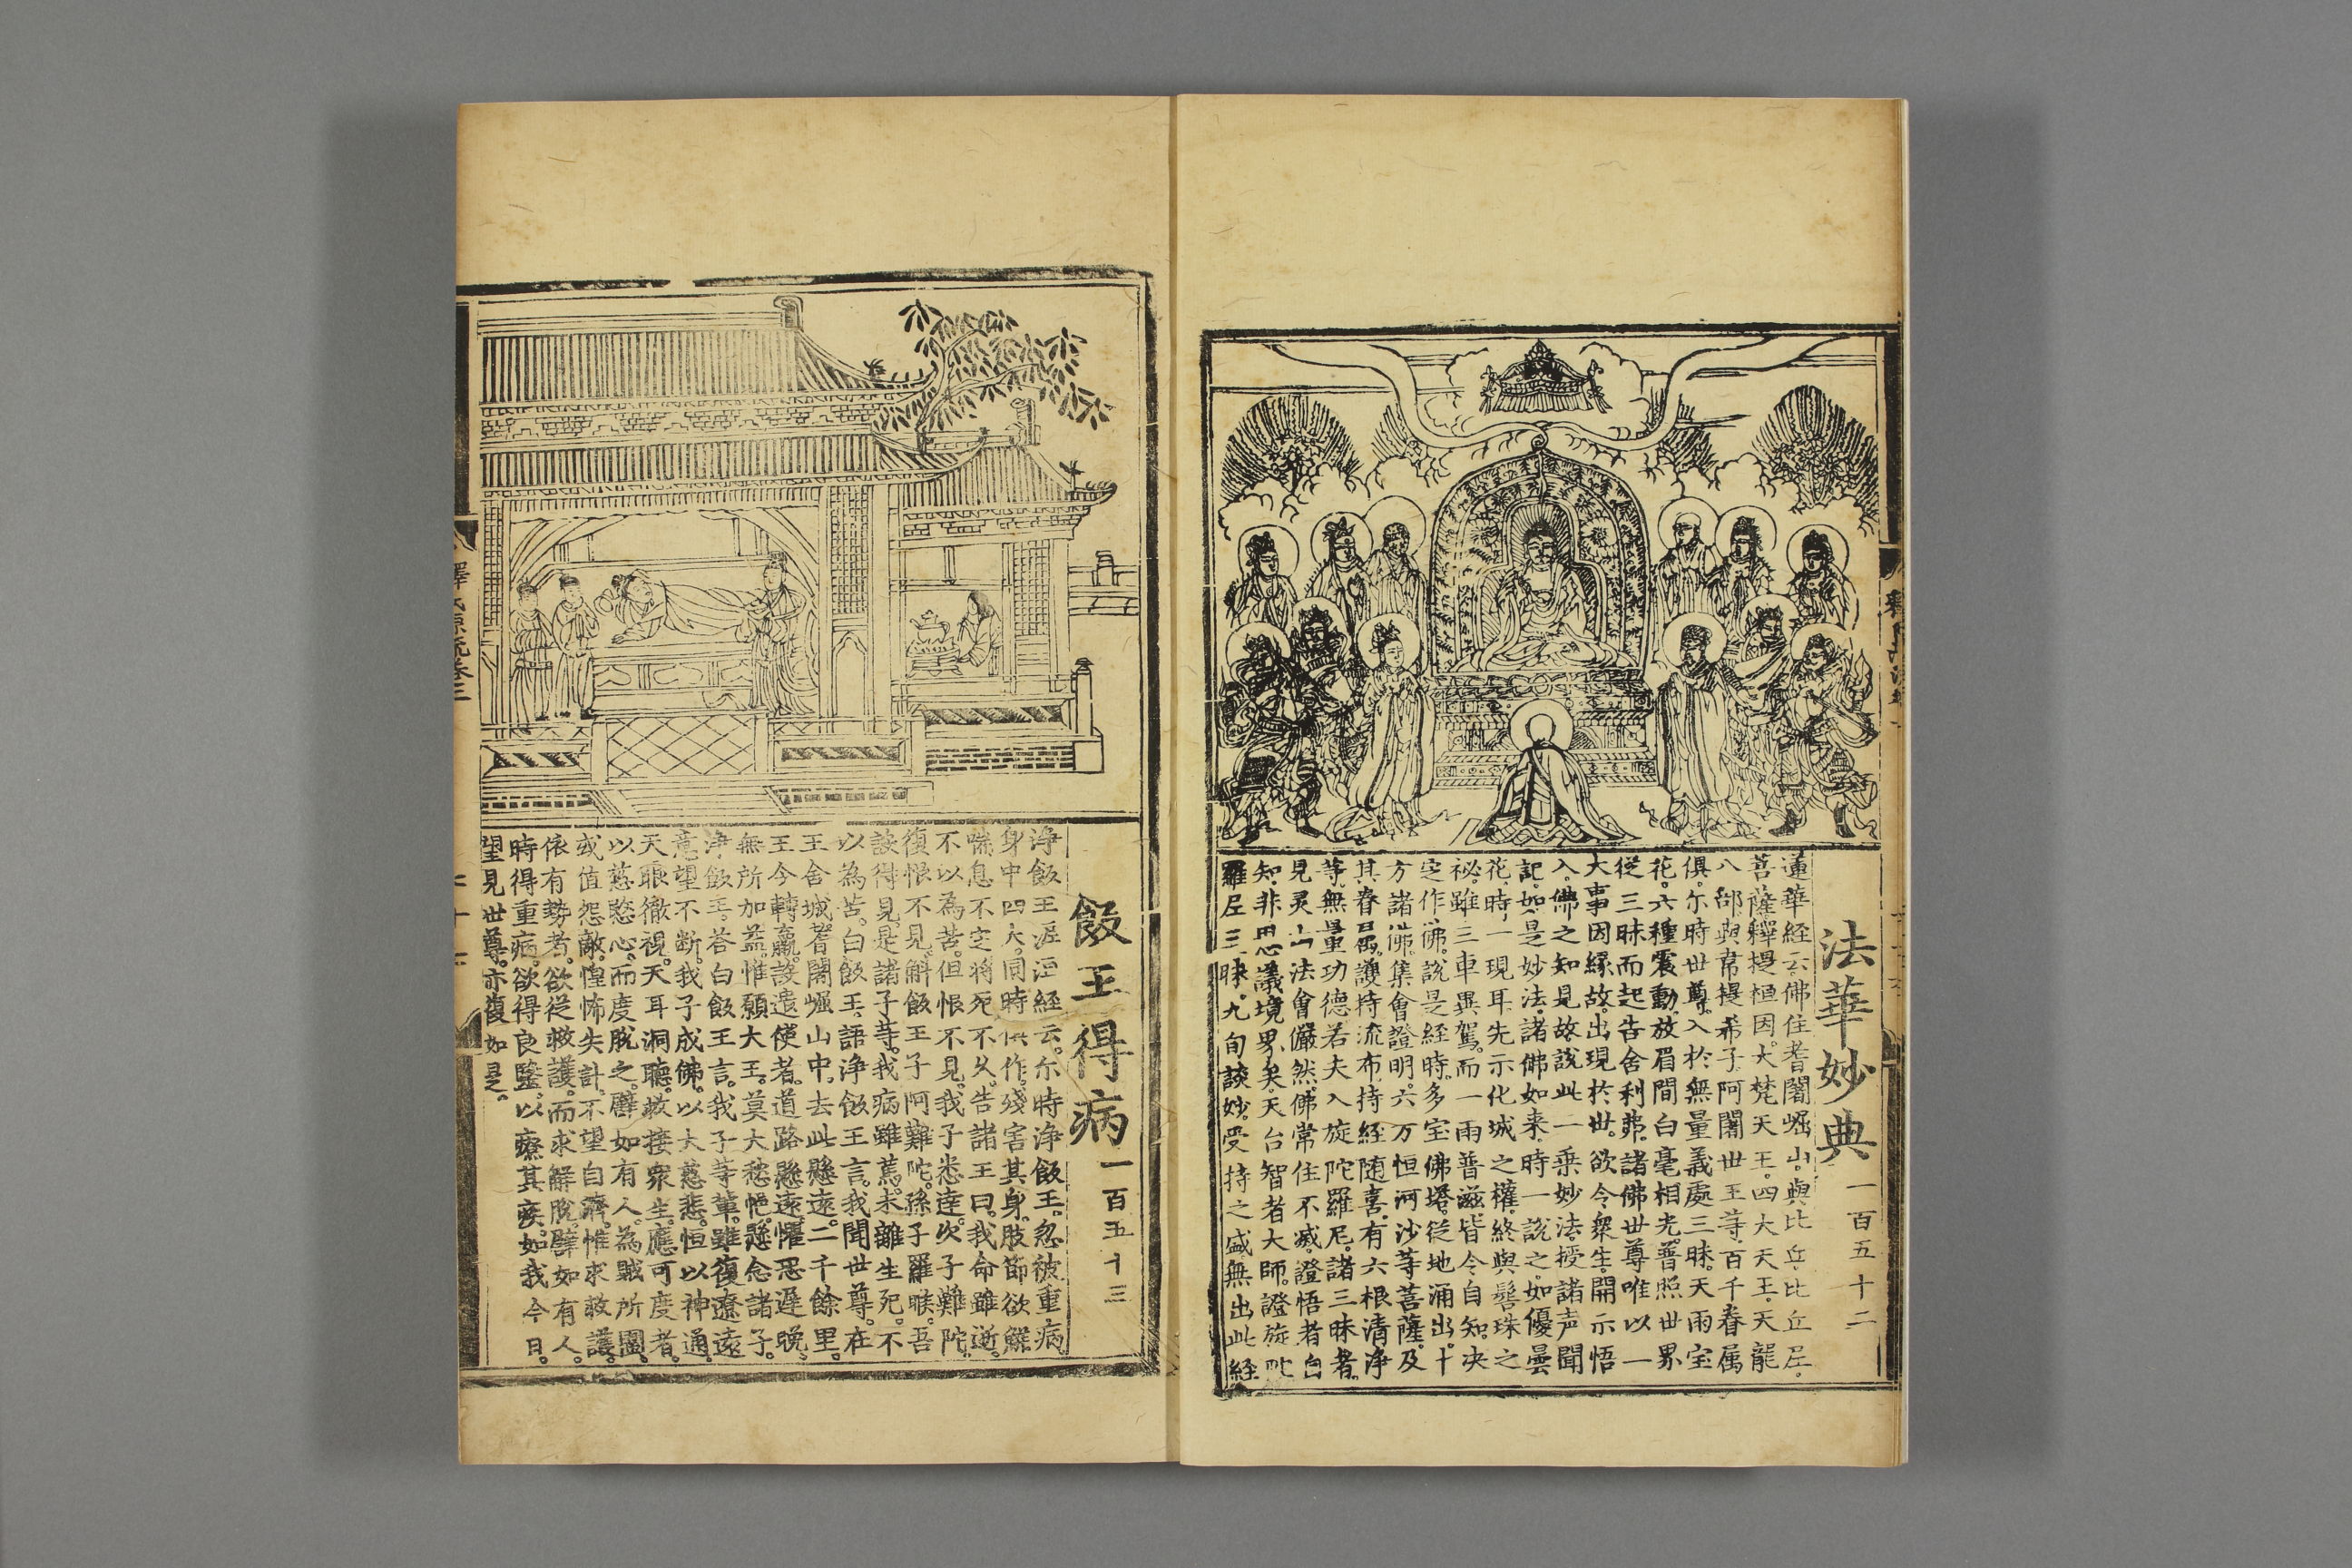 法華妙典 一百五十二
蓮華経云佛住耆闍崛山與比丘比丘尼
菩薩釋提桓因大梵天王四大天王天龍
八部與韋提希子阿闍世王等百千眷属
俱尔時世尊入於無量義處三昧天雨宝
花六種震動放眉間白毫相光普照世界
從三昧而起告舍利弗諸佛世尊唯以一
大事因緣故出現於世欲令衆生開示悟
入佛之知見故說此一乗妙法授諸声聞
記如是妙法諸佛如来時一說之如優曇
花時一現耳先示化城之權終與髻珠之
祕雖三車異駕而一雨普滋皆令自知决
定作佛說是経時多宝佛塔従地涌出十
方諸佛集會證明六万恒河沙等菩薩及
其眷属護持流布持経随喜有六根清浄
等無量功德若夫入旋陀羅尼諸三昧者
見灵山法會儼然佛常住不滅證悟者自
知非思議境界矣天台智者大師證旋陀
羅尼三昧九旬談妙受持之盛無出此経
飯王得病 一百五十三
浄飯王泥洹経云尔時浄飯王忽被重病
身中四大同時俱作殘害其身肢節欲解
喘息不定將死不久告諸王曰我命雖逝
不以為苦但恨不見我子悉達次子難陀
復恨不見斛飯王子阿難陀孫子羅睺吾
設得見是諸子等我病雖篤未離生死不
以為苦白飯王語浄飯王言我聞世尊在
王舍城耆闍崛山中去此懸遠二千餘里
王今轉羸設遣使者道路懸遠懼恐遅晚
無所加益惟願大王莫大愁悒懸念諸子
浄飯王答白飯王言我子等輩雖復遼遠
意望不断我子成佛以大慈悲恒以神通
天眼徹視天耳洞聽救接衆生應可度者
以慈愍心而度脫之譬如有人為賊所圍
或值怨敵惶怖失計不望自濟惟求救護
依有勢者欲從救護而求解脫譬如有人
時得重病欲得良醫以療其疾如我今日
望見世尊亦復如是
釋氏源流卷三